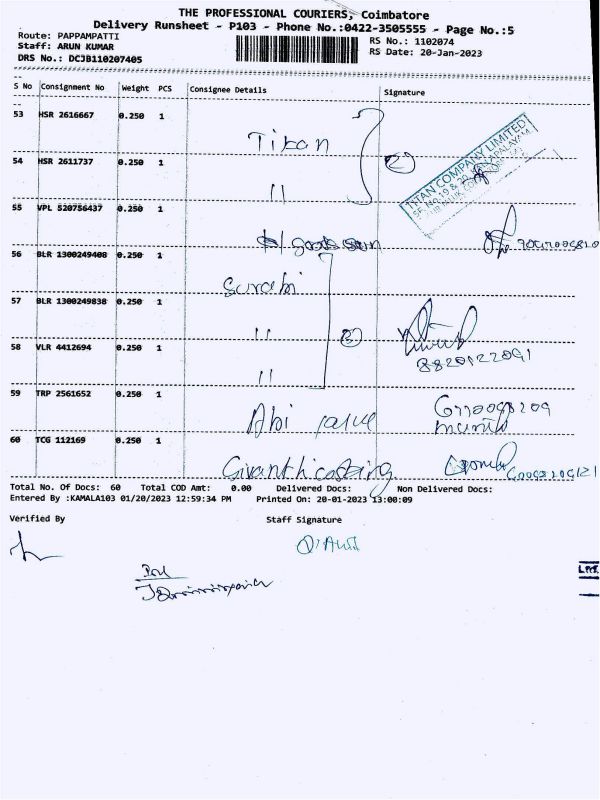 THE PROFESSIONAL COURIERS, Coimbatore
Delivery Runsheet - P103 - Phone No.:0422-3505555 - Page No.:5
Route: PAPPAMPATTI
RS No.: 1102074
Staff: ARUN KUMAR
RS Date: 20-Jan-2023
DRS No.: DCJB110207405
S No Consignment No Weight PCS Consignee Details Signature
53 HSR 2616667 0.250 1 Titan
54 HSR 2611737 0.250 1 11 2
TITAN COMPANY LIMITED
55 VPL 520756437 0.250 1
56 BLR 1300249408 0.250 1 Surabi
57 BLR 1300249838 0.250 1 11 3
58 VLR 4412694 0.250 1 11
8820122091
59 TRP 2561652 0.250 1 Abi
60 TCG 112169 0.250 1
Total No. Of Docs: 60 Total COD Amt: 0.00 Delivered Docs: Non Delivered Docs:
Entered By :KAMALA103 01/20/2023 12:59:34 PM Printed On: 20-01-2023 13:00:09
Verified By Staff Signature